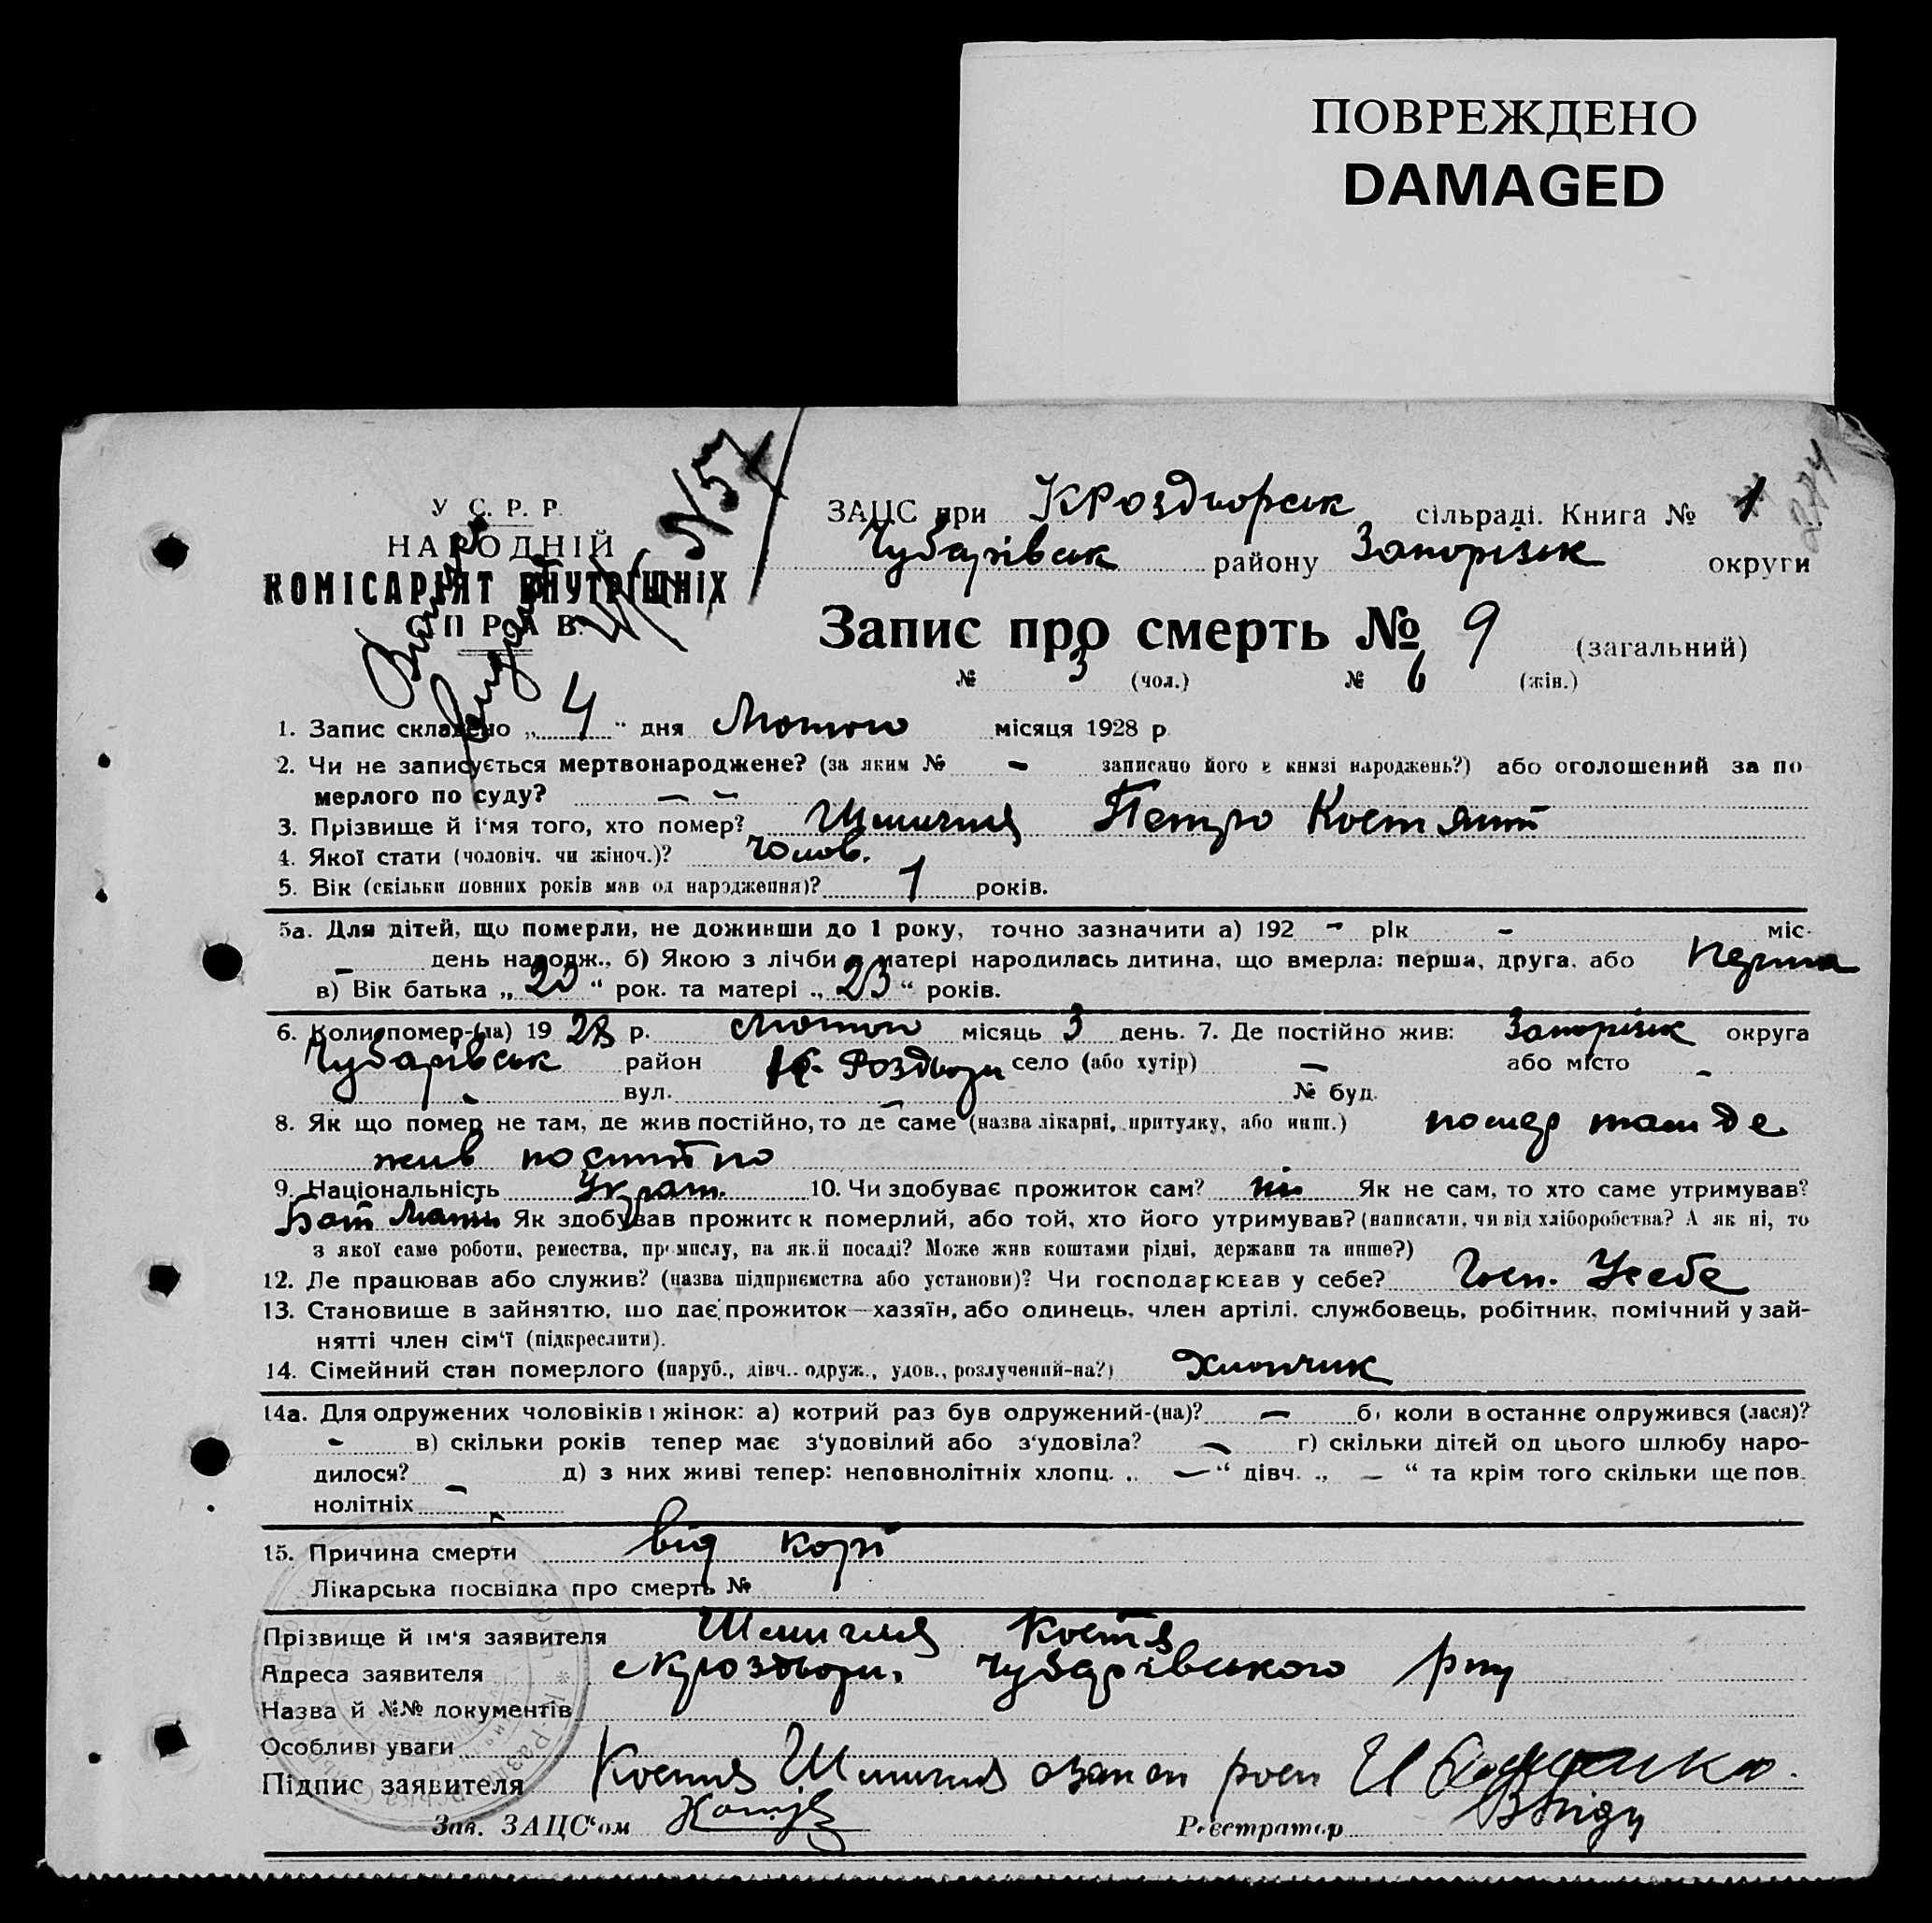 ПОВРЕЖДЕНО
DAMAGED
У С. Р. Р.
НАРОДНІЙ
КОМІСАРІЯТ ВНУТРІШНІХ
СПРАВ.
ЗАЦС при КРоздорськ сільраді. Книга № 1
Чубарівськ району Запорізьк округи
Запис про смерть № 9 (загальний)
№ 3 (чол.) № 6 (жін.)
1. Запис складено „ 4 “ дня Лютого місяця 1928 р
2. Чи не записується мертвонароджене? (за яким № – записано його в книзі народжень?) або оголошений за по
мерлого по суду? – –
3. Прізвище й і‘мя того, хто помер? Шмигля Петро Костянт
4. Якої стати (чоловіч. чи жіноч.)? Чолов.
5. Вік (скільки повних років мав од народження)? 1 років.
5а. Для дітей, що померли, не доживши до 1 року, точно зазначити а) 192 – рік – міс.
– день народж., б) Якою з лічби у матері народилась дитина, що вмерла: перша, друга, або Перша
в) Вік батька „ 20 “ рок. та матері „ 23 “ років.
6. Коли помер-(ла) 19 28 р. Лютого місяць 3 день. 7. Де постійно жив: Запорізьк округа
Чубарівськ район К. Роздори село (або хутір) – або місто –
– вул. – № буд.
8. Як що помер не там, де жив постійно, то де саме (назва лікарні, притулку, або инш.) помер там де
жив постійно
9. Національність Украт. 10. Чи здобуває прожиток сам? ні Як не сам, то хто саме утримував?
Бат Мати Як здобував прожиток померлий, або той, хто його утримував? (написати, чи від хліборобства? А як ні, то
з якої саме роботи, ремества, промислу, на якій посаді? Може жив коштами рідні, держави та инше?)
12. Де працював або служив? (назва підприємства або установи)? Чи господарював у себе? Госп. Усебе
13. Становище в зайняттю, що дає прожиток—хазяїн, або одинець, член артілі, службовець, робітник, помічний у зай-
нятті член сім‘ї (підкреслити).
14. Сімейний стан померлого (паруб., дівч.. одруж., удов., розлучений-на?) Хлопчик
14а. Для одружених чоловіків і жінок: а) котрий раз був одружений-(на)? – б) коли востаннє одружився (лася)?
– в) скільки років тепер має з‘удовілий або з‘удовіла? – г) скільки дітей од цього шлюбу наро-
дилося? – д) з них живі тепер: неповнолітніх хлопц. „ – “ дівч. „ – “ та крім того скільки ще пов.
нолітніх –
15. Причина смерти від корі
Лікарська посвідка про смерть №
Прізвище й ім‘я заявителя Шмигля Костя
Адреса заявителя с Кроздори, Чубарівського рну
Назва й №№ документів
Особливі уваги
Підпис заявителя Костя Шмигля
Зав. ЗАЦС‘ом
Реєстратор